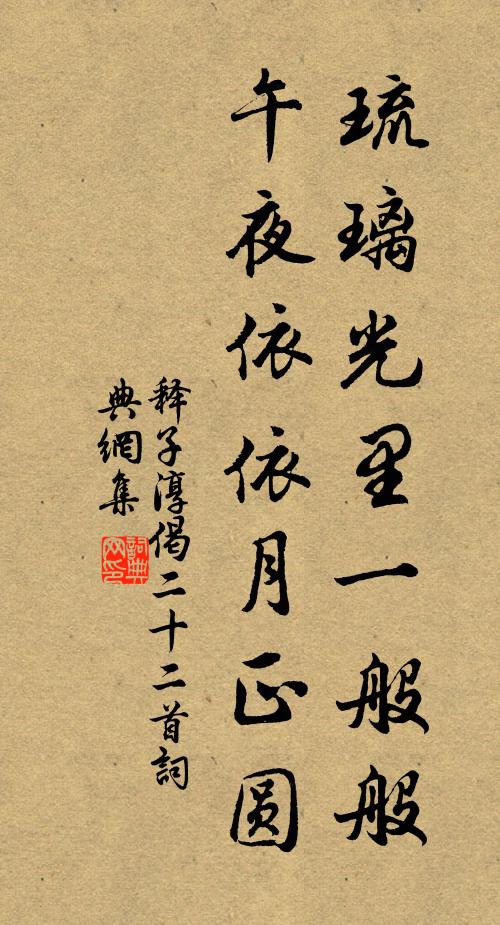 琉璃光里一般般
午夜依依月正圆
释子淳偈二十二首詞
典網集
詞典
网印